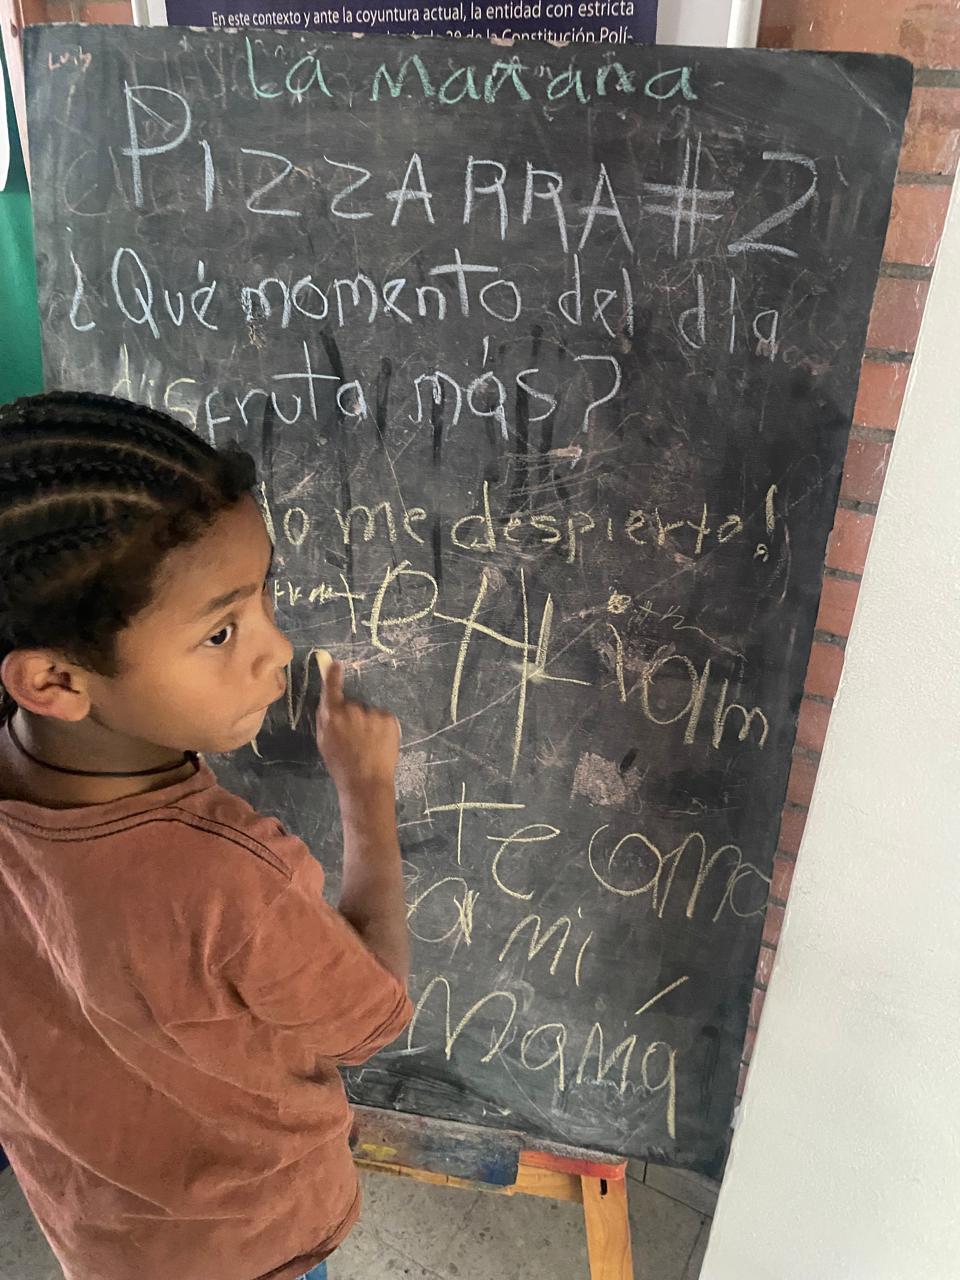 En este contexto y ante la coyuntura actual, la entidad con estricta
de la Constitución Polí-
Luis
La mañana
PIZZARRA #2
¿Qué momento del día
disfruta más?
lo me despierto!
10am
te amo
a mi
Mamá